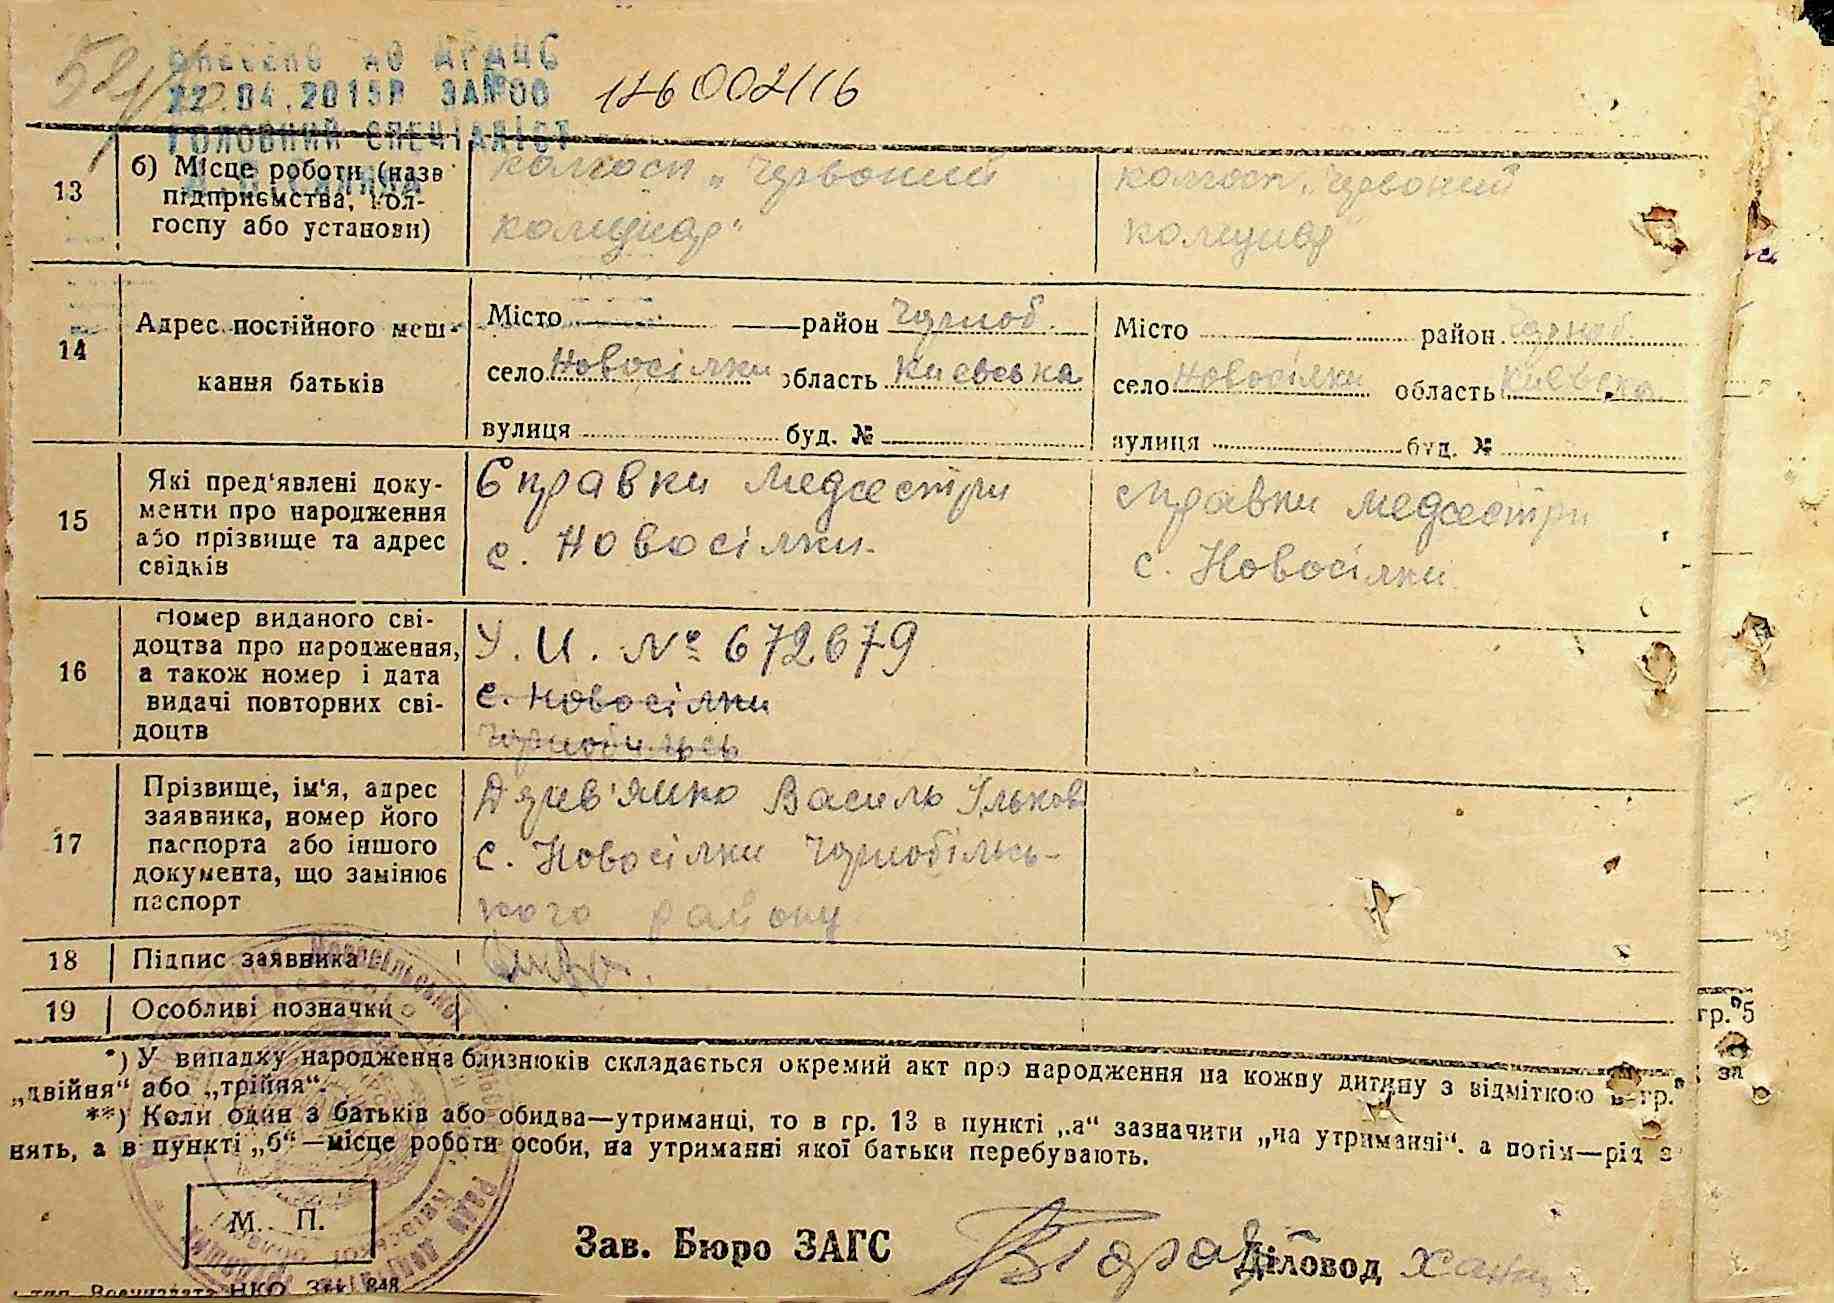 внесено до ДРАЦС
22.04.2015р ЗА№00 126002116
ГОЛОВНИЙ СПЕЦІАЛІСТ
13
б) Місце роботи (назв
підприємства, кол-
госпу або установи)
колгосп „Червоний
комунар"
колгосп „Червоний
комунар
14
Адрес постійного меш-
кання батьків
Місто район Чорноб.
село Новосілки область Києвська
вулиця буд. №
Місто район Чорноб.
село Новосілки область Києвська
вулиця буд. №
15
Які пред'явлені доку-
менти про народження
або прізвище та адрес
свідків
Справки медсестри
с. Новосілки.
справки медсестри
с. Новосілки
16
Номер виданого сві-
доцтва про народження,
а також номер і дата
видачі повторних сві-
доцтв
У. И. № 672679
с. Новосілки
Чорнобильсь
17
Прізвище, ім'я, адрес
заявника, номер його
паспорта або іншого
документа, що замінює
паспорт
Василь Ільков
с. Новосілки Чорнобільсь-
кого району
18 Підпис заявника
19 Особливі позначки
гр. 5
*) У випадку народження близнюків складається окремий акт про народження на кожну дитину з відміткою в гр.
„двійня“ або „трійня“.
**) Коли один з батьків або обидва—утриманці, то в гр. 13 в пункті „а“ зазначити „на утриманні“. а потім—рід з
нять, а в пункті „б“—місце роботи особи, на утриманні якої батьки перебувають.
М. П.
Зав. Бюро ЗАГС
Діловод
НКО Зак. 848